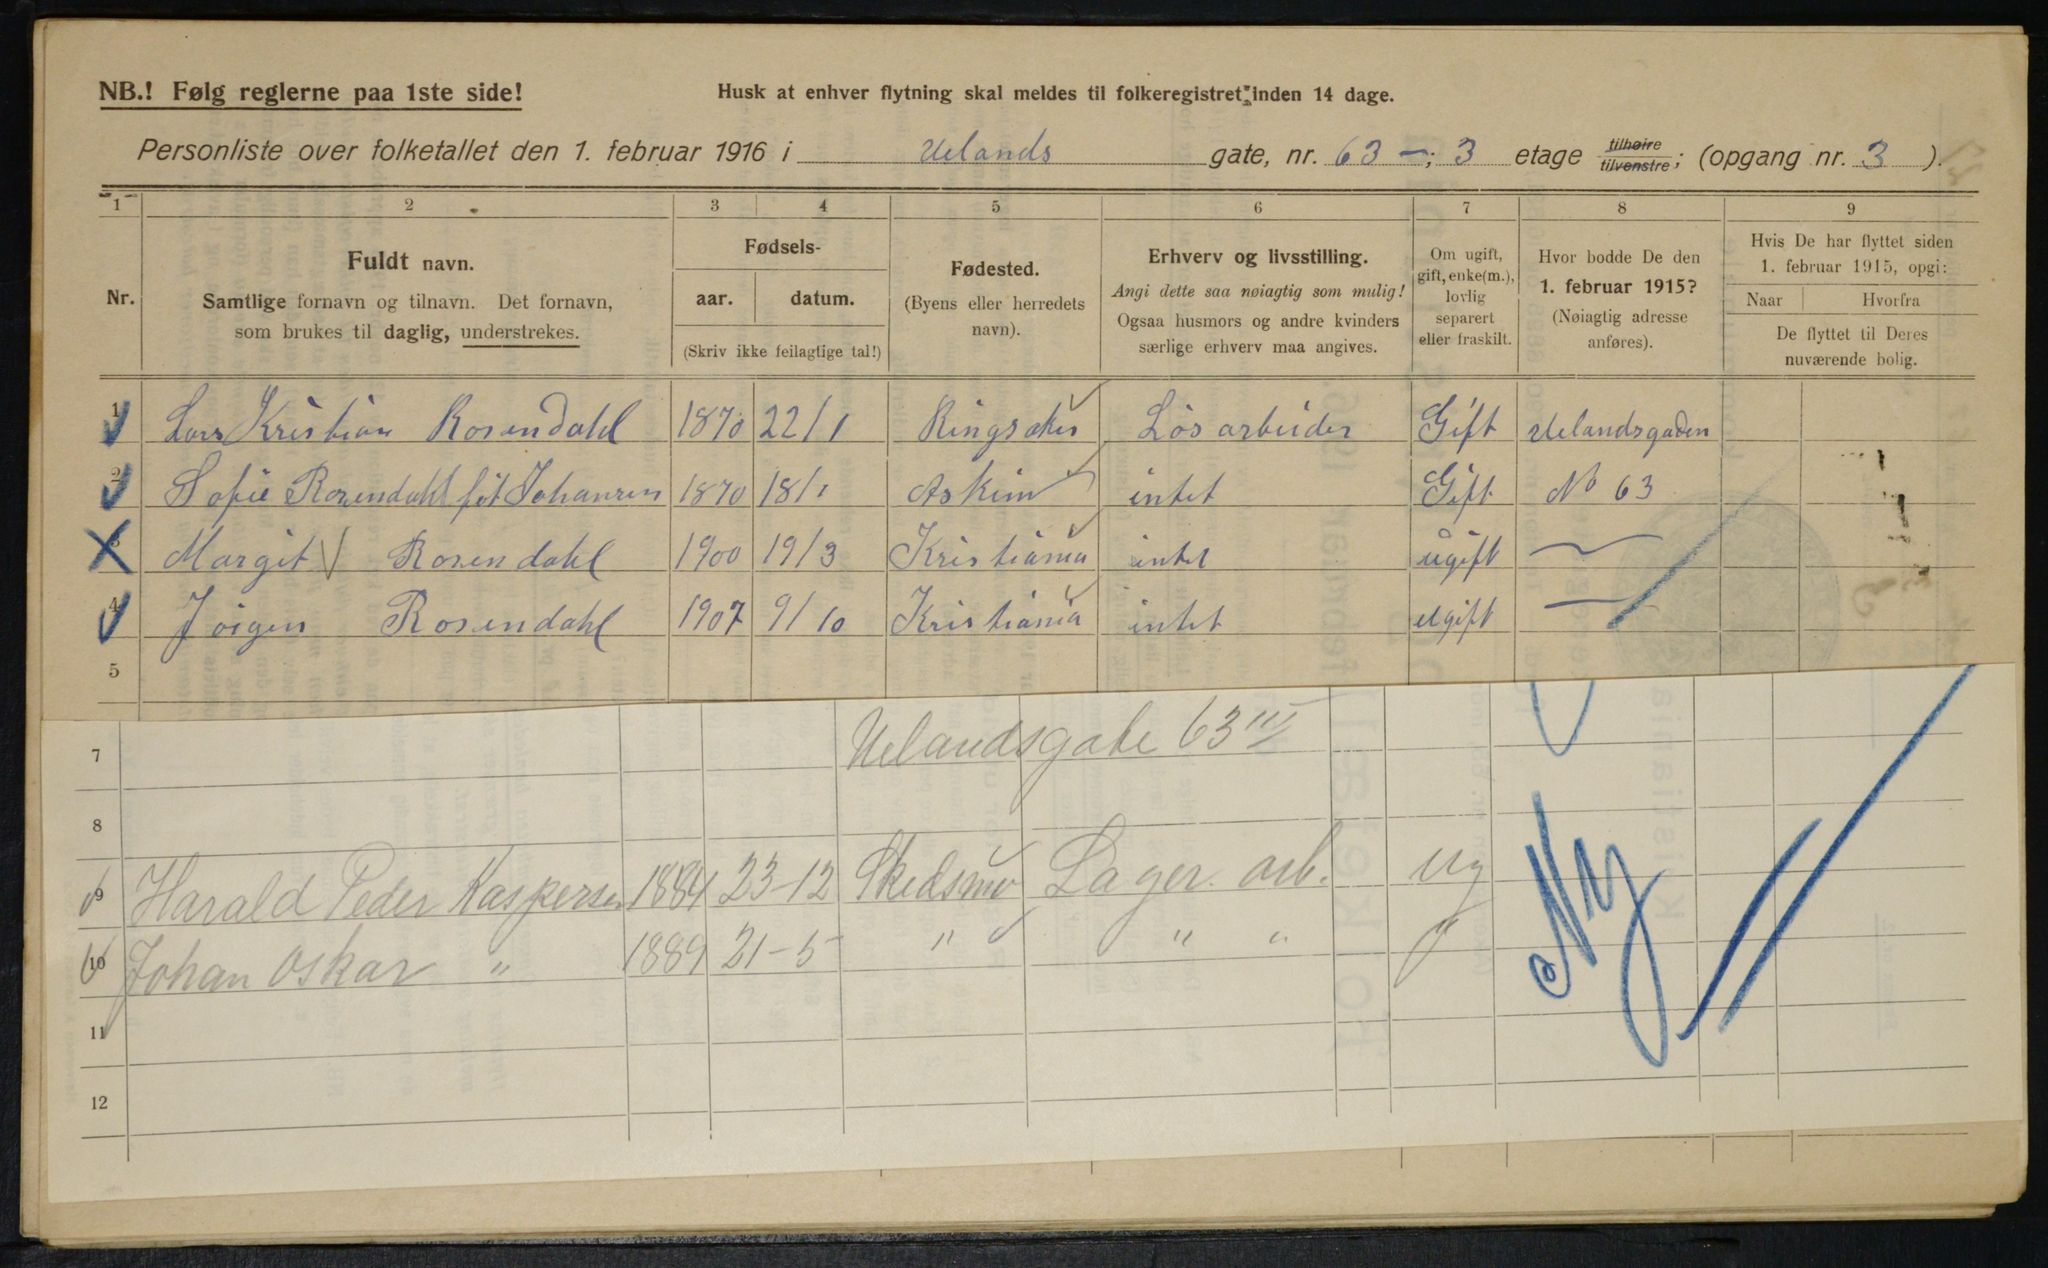 NB.! Følg reglerne paa 1ste side!
Husk at enhver flytning skal meldes til folkeregistret inden 14 dage.
Personliste over folketallet den 1. februar 1916 i Uelands gate, nr. 63 - ; 3 etage tilhøire tilvenstre; (opgang nr. 3 ).
1 2 3 4 5 6 7 8 9
Nr.
Fuldt navn.
Samtlige fornavn og tilnavn. Det fornavn,
som brukes til daglig, understrekes.
Fødsels-
aar. datum.
(Skriv ikke feilagtige tal!)
Fødested.
(Byens eller herredets
navn).
Erhverv og livsstilling.
Angi dette saa nøiagtig som mulig!
Ogsaa husmors og andre kvinders
særlige erhverv maa angives.
Om ugift,
gift, enke(m.),
lovlig
separert
eller fraskilt.
Hvor bodde De den
1. februar 1915?
(Nøiagtig adresse
anføres).
Hvis De har flyttet siden
1. februar 1915, opgi:
Naar Hvorfra
De flyttet til Deres
nuværende bolig.
1 Lars Kristian Rosendahl 1870 22/1 Ringsaker Lösarbeider Gift Uelandsgaden
2 Sofie Rosendahl föt Johansen 1870 18/1 Askim intet Gift No 63
3 Margit Rosendahl 1900 19/3 Kristiania intet ugift
4 Jörgen Rosendahl 1907 9/10 Kristiania intet ugift
5
7 Uelandsgate 63 III
8
9 Harald Peder Kaspersen 1884 23-12 Skedsmo Lager. arb. Ug
10 Johan Oskar " 1889 21-5 " " "
Ny
11
12